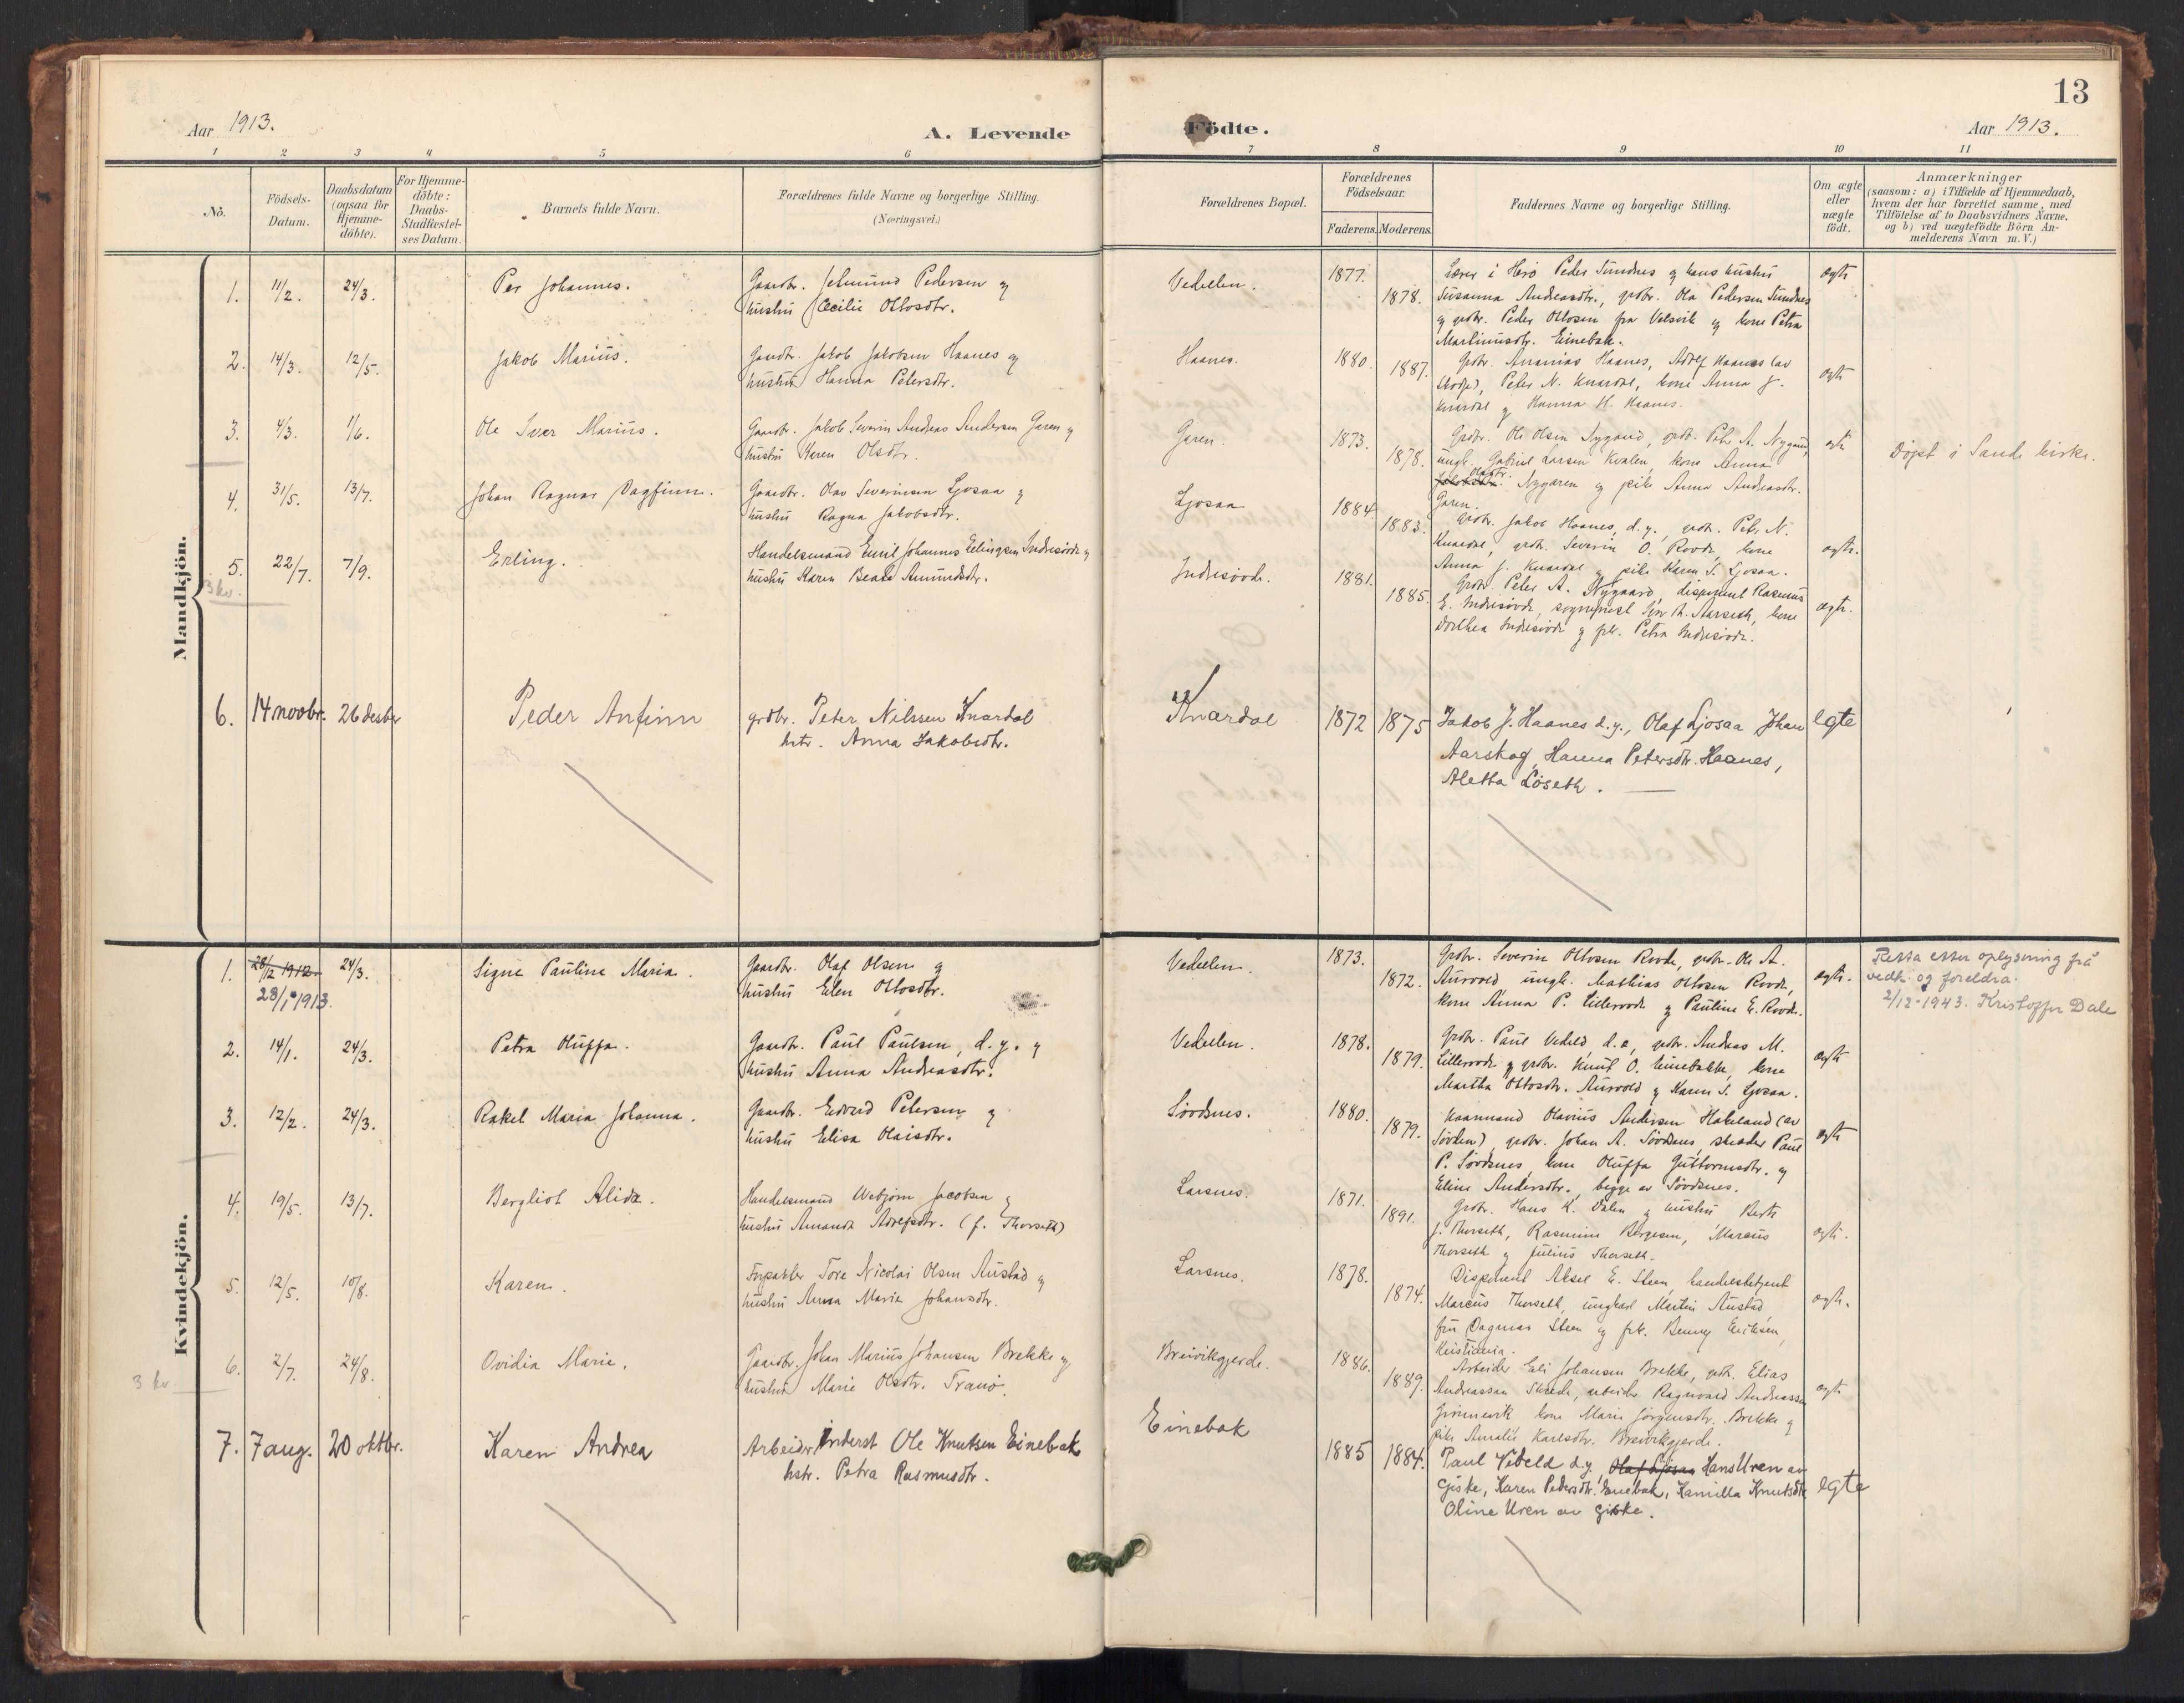 13
Aar 1913.
A. Levende
Födte.
Aar 1913.
1 2 3 4 5 6 7 8 9 10 11
No.
Födsels-
Datum.
Daabsdatum
(ogsaa for
Hjemme-
döbte).
For Hjemme-
döbte:
Daabs-
Stadfæstel-
ses Datum.
Barnets fulde Navn.
Forældrenes fulde Navne og borgerlige Stilling.
(Næringsvei.)
Forældrenes Bopæl.
Forældrenes
Födselsaar.
Faderens. Moderens.
Faddernes Navne og borgerlige Stilling.
Om ægte
eller
uægte
födt.
Anmærkninger
(saasom: a) i Tilfælde af Hjemmedaab,
hvem der har forrettet samme, med
Tilföielse af to Daabsvidners Navne,
og b) ved uægtefödte Börn An-
melderens Navn m. V.)
Mandkjön.
1. 11/2. 24/3. Per Johannes.
Gaardbr. Pedersen og
hustru Cecilie Ottosdtr.
Vedelen. 1877. 1878.
Lærer i Herö Peder Sundnes og hans hustru
Susanna Andreasdtr., grdbr. Ola Pedersen Sundnes
og grdbr. Peder Ottosen fra Velsvik og kone Petra
Martinusdtr. Einebak.
ægte
2. 14/3. 12/5. Jakob Marius.
Gaardbr. Jakob Jakobsen Haanes og
hustru Hanna Petersdtr.
Haanes. 1880. 1887.
Grdbr. Ananias Haanes, Adolf Haanes (av
Skodje), Peter N. Knardal, kone Anna J.
Knardal og Hanna H. Haanes.
ægte
3. 4/3. 1/6. Ole Iver Marius.
Gaardbr. Jakob Severin Andreas Andersen Garen og
hustru Karen Olsdtr.
Garen. 1873. 1878.
Grdbr. Ole Olsen Nygaard, grdb. Petr A. Nygaard,
ungk. Gabriel Larsen Kvalen, kone Anna
Olasdtr. Nygaren og pike Anna Andreasdtr.
Garen.
ægte
Döpt i Sande kirke.
4. 31/5. 13/7. Johan Ragnar Dagfinn.
Gaardbr. Olav Severinsen Ljosaa og
hustru Ragna Jakobsdtr.
Ljosaa 1884 1883.
grdbr. Jakob Haanes, d.y., grdb. Petr N.
Knardal, grdb. Severin O. Rovde, kone
Anna J. Knardal og pike Karen S. Ljosaa.
ægte.
5. 22/7. 7/9. Erling.
3 kv.
Handelsmand Emil Johannes Erlingsen Indresövde og
hustru Karen Beate Amundsdtr.
Indresövde. 1881. 1885.
Grdbr Peter A. Nygaard, disponent Rasmus
E. Indresövde, sogneprest Aarseth, kone
Dorthea Indresövde og frk. Petra Indresövde.
ægte.
6. 14 novbr. 26 desbr Peder Anfinn
grdbr. Peter Nilssen Knardal
hstr. Anna Jakobsdtr.
Knardal 1872 1875
Jakob J. Haanes d.y., Olaf Ljosaa Johan
Aarskog, Hanna Petersdtr. Haanes,
Aletta Löseth.
egte
Kvindekjön.
1. 28/2 1912. 24/3. Signe Pauline Maria.
28/1 1913.
Gaardbr. Olaf Olsen og
hustru Elen Ottosdtr.
Vedelen. 1873. 1872.
Grdbr. Severin Ottosen Rovde, grdbr. Ole A.
Aurvold, ungk. Mathias Ottosen Rovde,
kone Anna P. Lillerovde og Pauline E. Rovde.
ægte.
Retta etter oplysning frå
vedk. og foreldra.
2/12-1943. Kristoffer Dale
2. 14/1. 24/3. Petra Oluffa.
Gaardbr. Paul Paulsen, d.y. og
hustru Anna Andreasdtr.
Vedelen. 1878. 1879.
Grdbr. Paul Vedeld, d.e., grdbr. Andreas M.
Lillerovde og grdbr. Knut O. Einebakk, kone
Martha Ottosdtr. Aurvold og Karen S. Ljosaa.
ægte
3. 12/2. 24/3. Rakel Maria Johanna.
Gaardbr. Edvard Petersen og
hustru Elisa Olaisdtr.
Sövdsnes. 1880. 1879.
Kaarmand Olavius Andersen Hakeland (av
Sövden), grdbr. Johan A. Sövdsnes, skræder Paul
P. Sövdsnes, kone Oluffa Guttormsdtr. og
Eline Andersdtr., begge av Sövdsnes.
ægte
4. 19/5. 13/7. Bergliot Alida.
Handelsmand Webjörn Jacobsen og
hustru Amanda Adolfsdtr. (f. Thorseth)
Larsnes. 1871. 1891.
Grdbr. Hans K. Dalen og hustru Berte
J. Thorseth, Rasmine Börgesen, Marcus
Thorseth og Julius Thorseth.
ægte.
5. 12/5. 10/8. Karen.
Forpakter Tore Nicolai Olsen Austad og
hustru Anna Marie Johansdtr.
Larsnes. 1878. 1874.
Disponent Aksel E. Steen, handelsbetjent
Marcus Thorseth, ungkarl Martin Austad
fru Dagmar Steen og frk. Benny Eriksen,
Kristiania.
ægte.
6. 2/7. 24/8. Ovidia Marie.
3 kv.
Gaardbr. Johan Marius Johansen Brekke og
hustru Marie Olsdtr. Tranö.
Breivikgjerde. 1886. 1889.
Arbeider Eli Johansen Brekke, grdb. Elias
Andreassen Skrede, arbeider Ragnvald Andreassen
kone Marie Jörgensdtr. Brekke og
pike Amalie Karlsdtr. Breivikgjerde.
ægte
7. 7 aug. 20 oktbr. Karen Andrea
Arbeidr. Inderst Ole Knutsen Einebak
hstr. Petra Rasmusdtr.
Einebak 1885 1884.
Paul Vedeld d.y., Olaf Ljosaa Hans Uren av
Giske, Karen Pedersdtr. Einebak, Kamilla Knutsdtr
Oline Uren av Giske.
egte